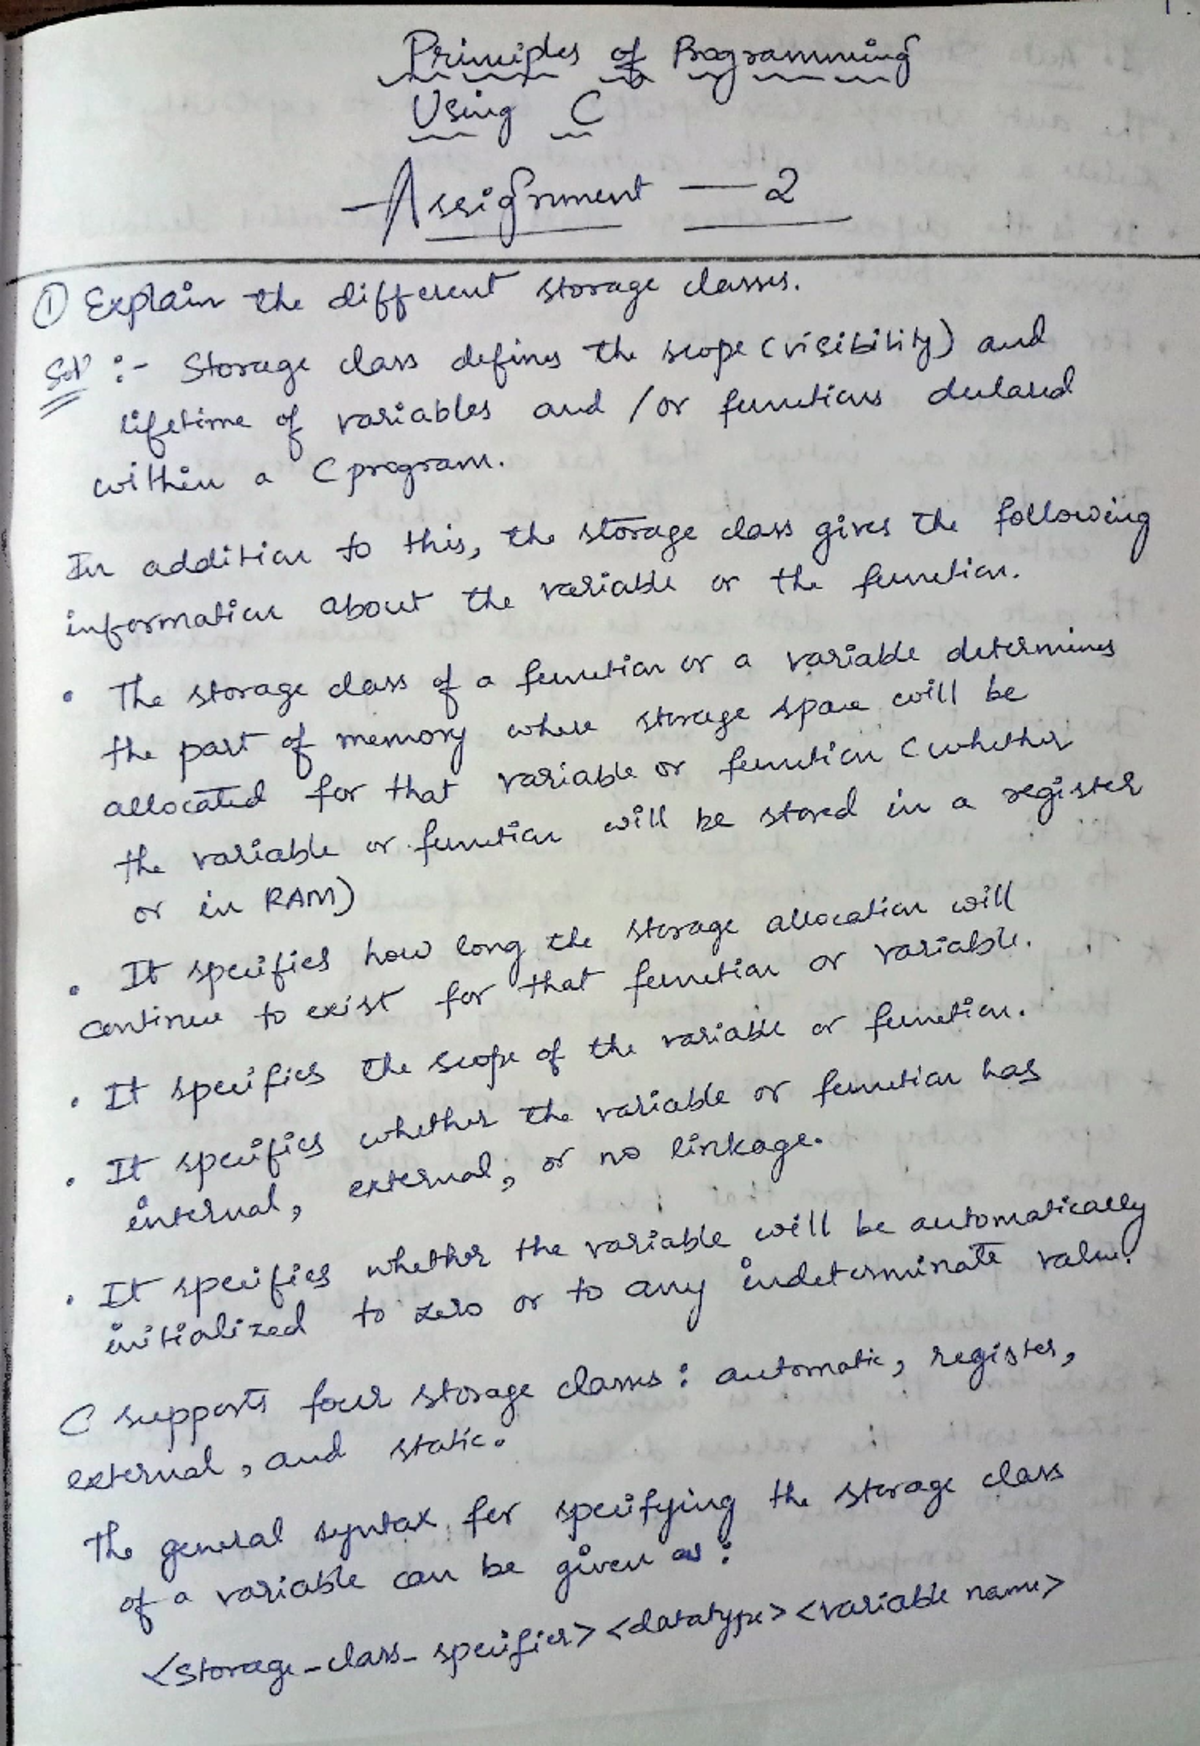 Principles of Programming
Using C
Assignment — 2
① Explain the different storage classes.
Solⁿ :- Storage class defines the scope (visibility) and
lifetime of variables and /or functions declared
within a C program.
In addition to this, the storage class gives the following
information about the variable or the function.
• The storage class of a function or a variable determines
the part of memory where storage space will be
allocated for that variable or function (whether
the variable or function will be stored in a register
or in RAM)
• It specifies how long the storage allocation will
continue to exist for that function or variable.
• It specifies the scope of the variable or function.
• It specifies whether the variable or function has
internal, external, or no linkage.
• It specifies whether the variable will be automatically
initialized to zero or to any indeterminate value.
C supports four storage classes: automatic, register,
external, and static.
The general syntax for specifying the storage class
of a variable can be given as:
<storage_class_specifier> <datatype> <variable name>